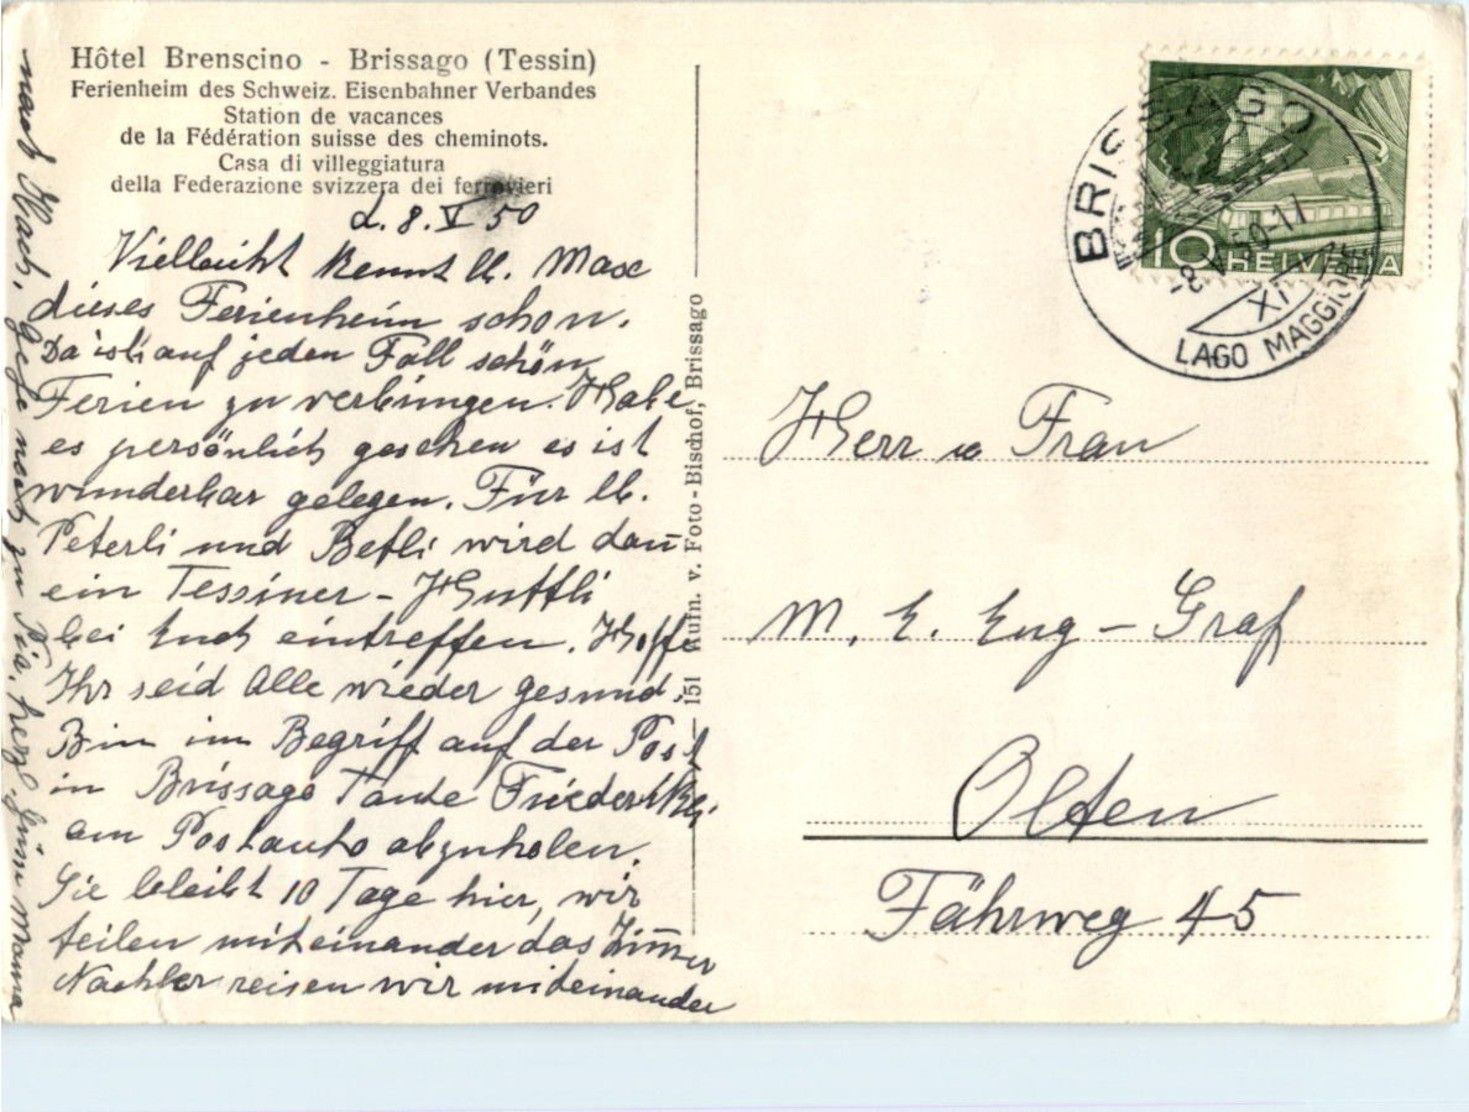 Hôtel Brenscino - Brissago (Tessin)
Ferienheim des Schweiz. Eisenbahner Verbandes
Station de vacances
de la Fédération suisse des cheminots.
Casa di villeggiatura
della Federazione svizzera dei ferrovieri
d. 8. V 50
Vielleicht kennt lb. Max
dieses Ferienheim schon.
Da ist auf jeden Fall schön
Ferien zu verbringen. Habe
es persönlich gesehen es ist
wunderbar gelegen. Für lb.
Peterli und Betli wird dan̄
ein Tessiner - Huttli
bei Euch eintreffen. Hoffe
Ihr seid Alle wieder gesund.
Bin im Begriff auf der Post
in Brissago Tante Friederikli
am Postauto abzuholen.
Sie bleibt 10 Tage hier, wir
teilen miteinander das Zim̄er
Nachher reisen wir miteinander
nach Hach, gehe noch zu Pia. herzl. Mama
151 Aufn. v. Foto-Bischof, Brissago
BRISSAGO
-8. V. 50-17
XI
LAGO MAGGIORE
10 HELVETIA
Herr u Frau
M. E. Eng - Graf
Olten
Fährweg 45